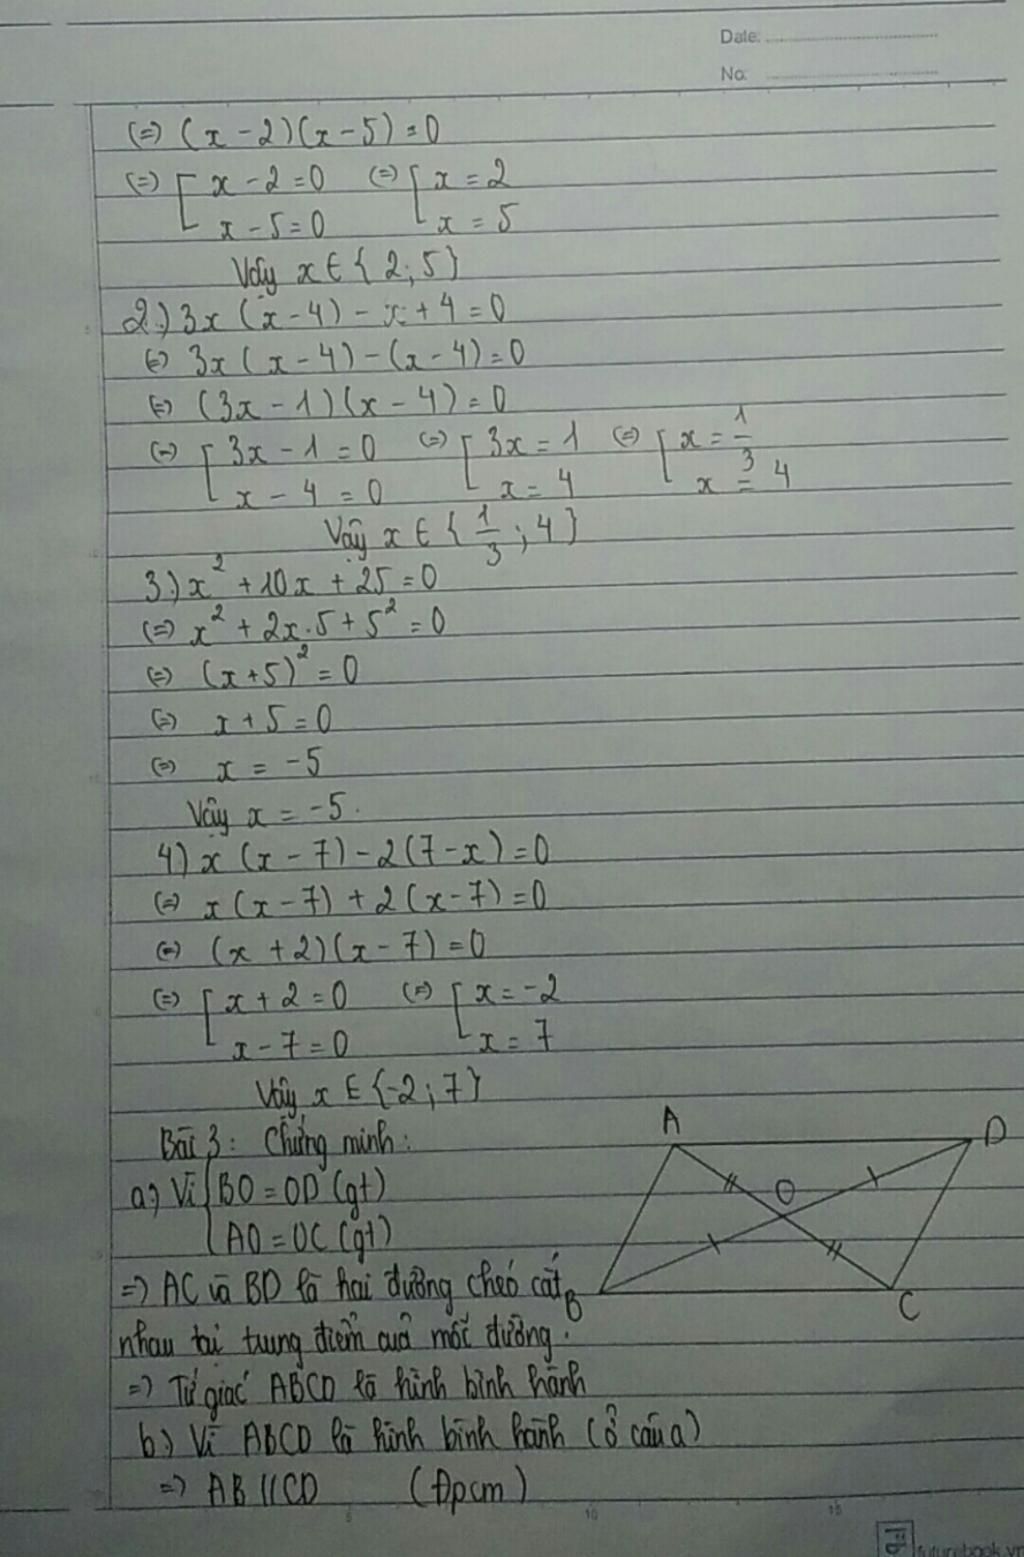 Date:
No:
(=) (x - 2)(x - 5) = 0
(=) [ x - 2 = 0 (=) [ x = 2
x - 5 = 0 x = 5
Vậy x ∈ { 2; 5 }
2.) 3x (x - 4) - x + 4 = 0
(=) 3x (x - 4) - (x - 4) = 0
(=) (3x - 1)(x - 4) = 0
(=) [ 3x - 1 = 0 (=) [ 3x = 1 (=) [ x = 1/3
x - 4 = 0 x = 4 x = 4
Vậy x ∈ { 1/3 ; 4 }
3.) x² + 10x + 25 = 0
(=) x² + 2x.5 + 5² = 0
(=) (x + 5)² = 0
(=) x + 5 = 0
(=) x = -5
Vậy x = -5.
4) x (x - 7) - 2(7 - x) = 0
(=) x (x - 7) + 2 (x - 7) = 0
(=) (x + 2)(x - 7) = 0
(=) [ x + 2 = 0 (=) [ x = -2
x - 7 = 0 x = 7
Vậy x ∈ {-2; 7}
Bài 3: Chứng minh:
A
D
a.) Vì { BO = OD (gt)
O
AO = OC (gt)
=> AC và BD là hai đường chéo cắt
B
C
nhau tại trung điểm của mỗi đường.
=> Tứ giác ABCD là hình bình hành
b.) Vì ABCD là hình bình hành (ở câu a)
=> AB // CD (Đpcm)
5 10 15
futurebook.vn